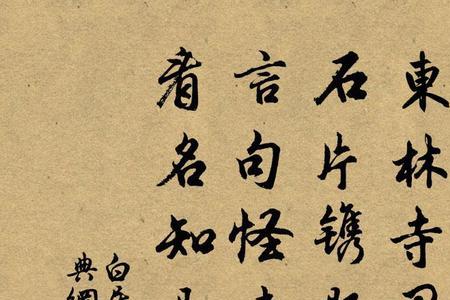 東林寺
石片镌
言句怪
看名知
白
典網